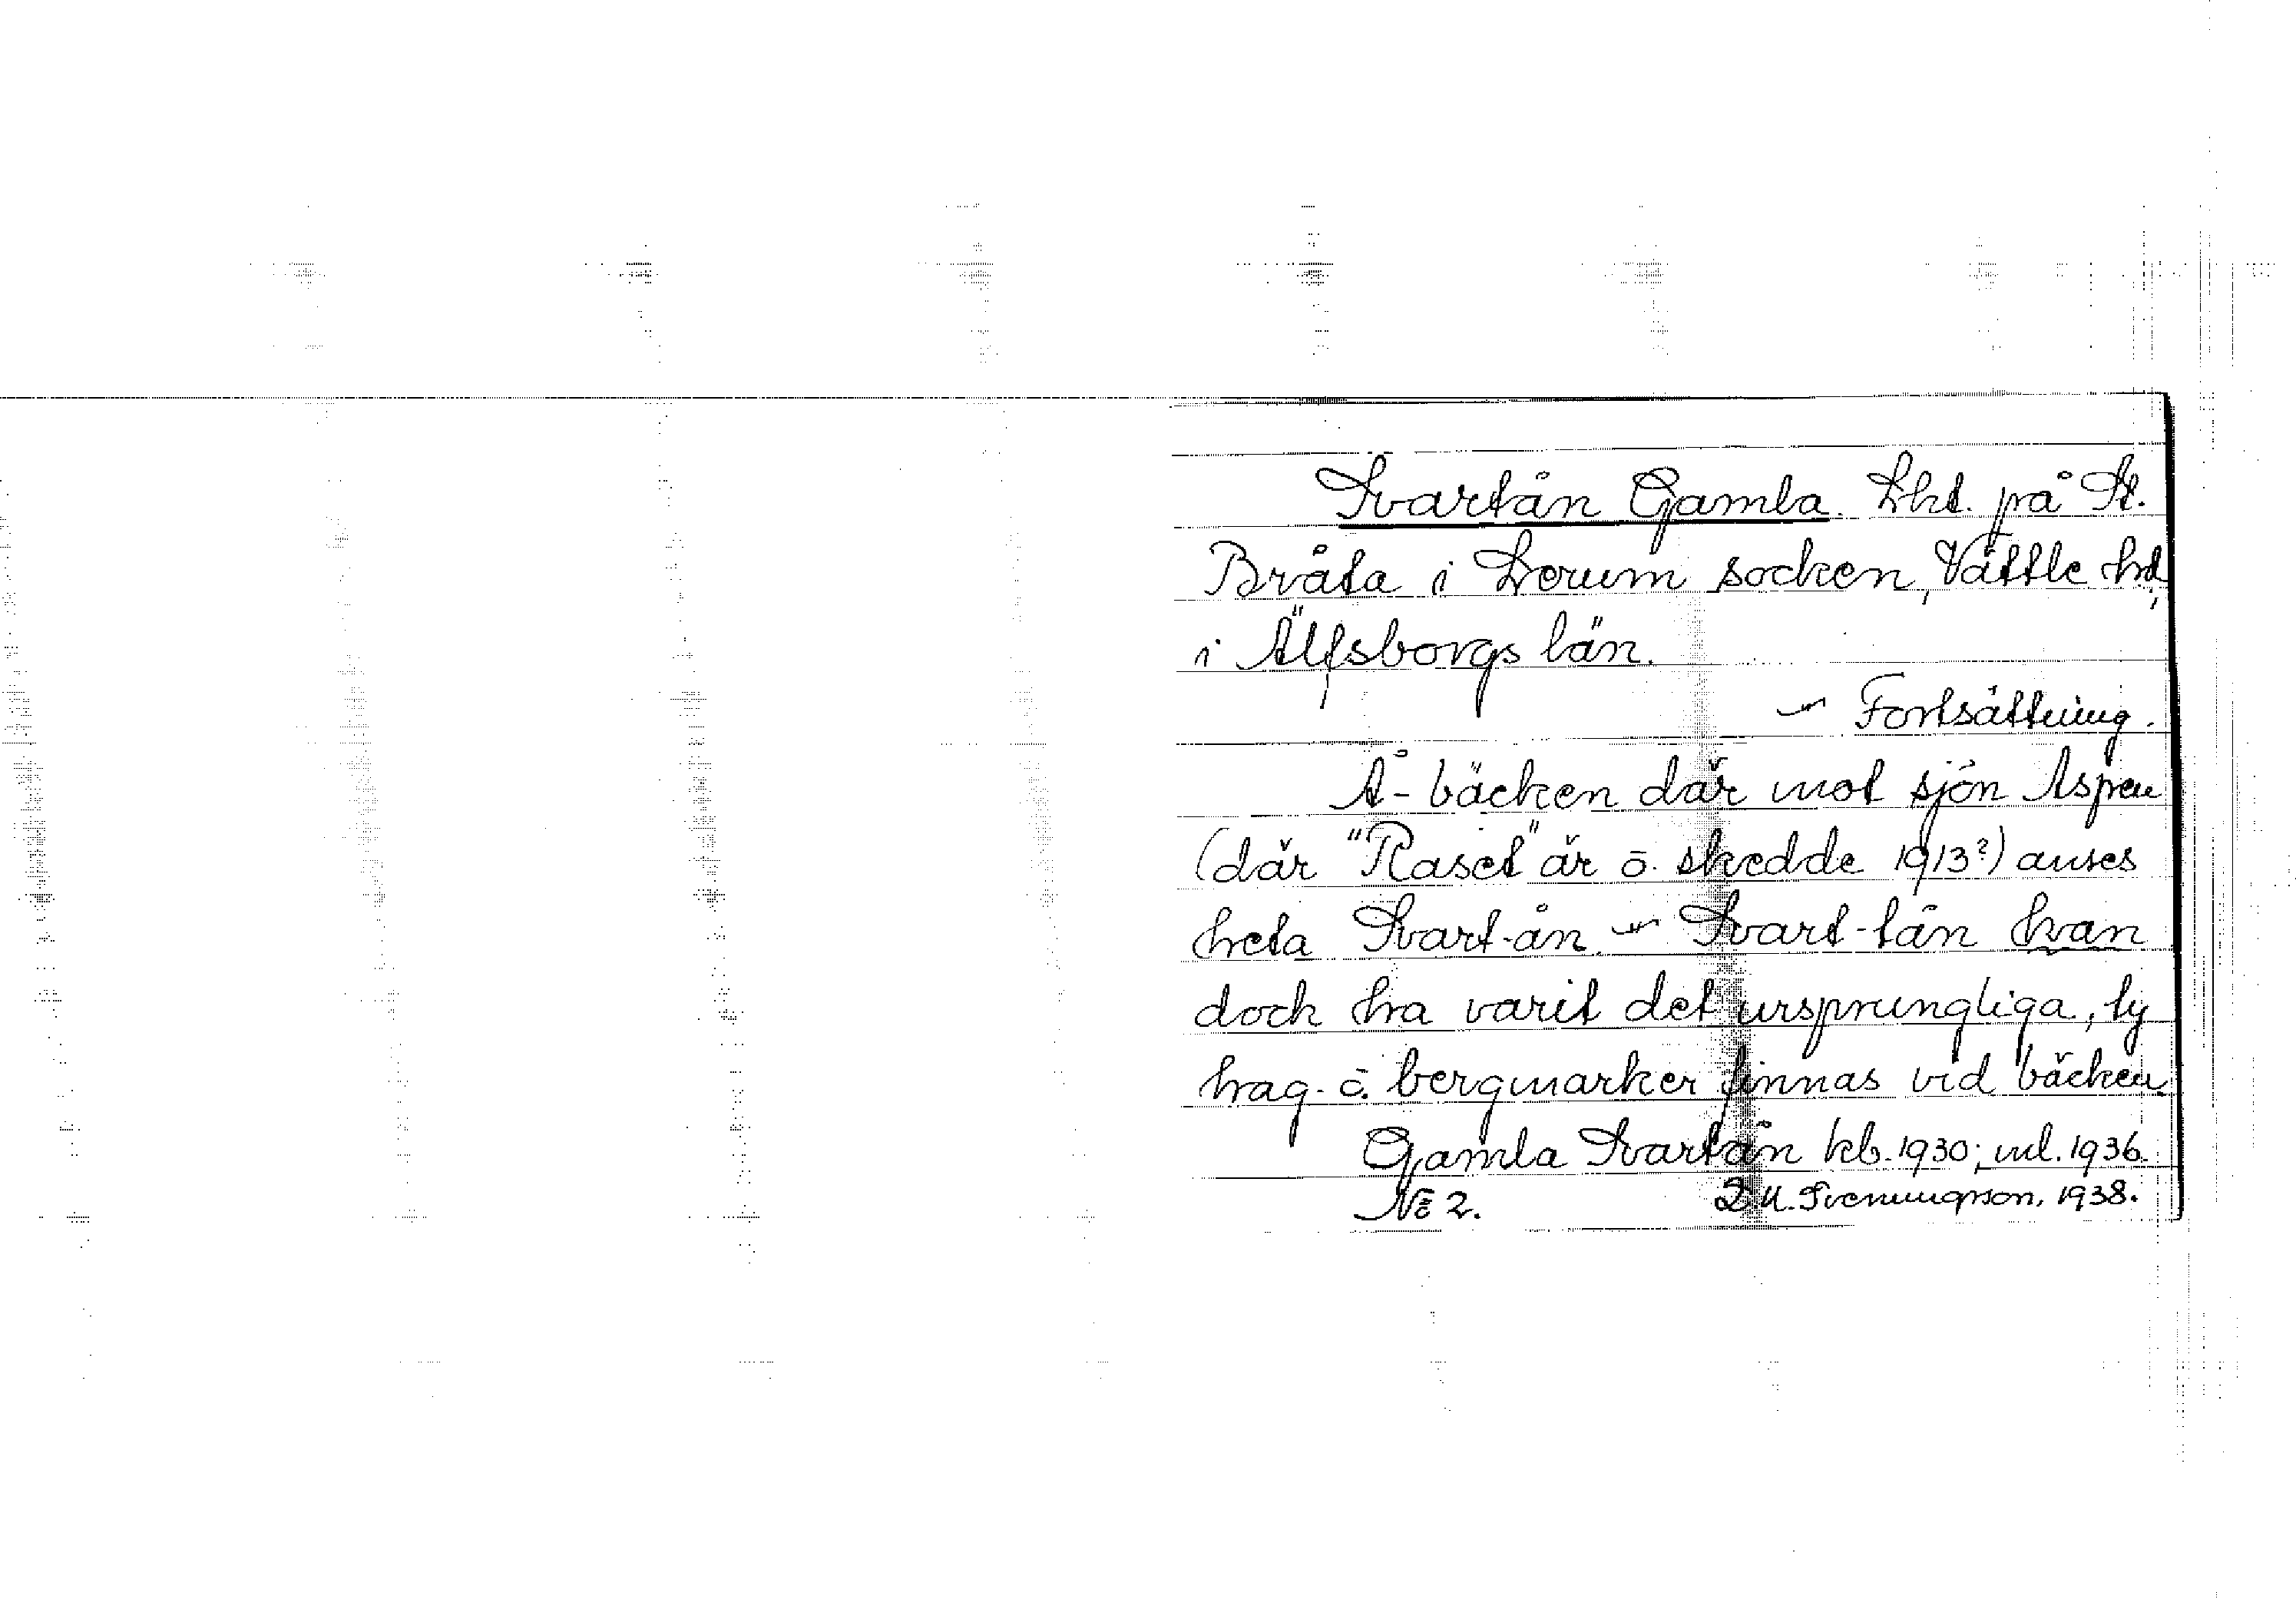 Svartån Gamla. Lht. på St.
Bråta i Lerum socken, Vättle hd,
i Älfsborgs län.
– Fortsättning.
Å-bäcken där mot sjön Aspen
(där "Raset" är o. skedde 1913?) anses
heta Svart-ån. – Svart-tån kan
dock ha varit det ursprungliga, ty
hag- o. bergmarker finnas vid bäcken.
Gamla Svartån kb. 1930; ml. 1936.
No 2. D. U. Svenungsson, 1938.